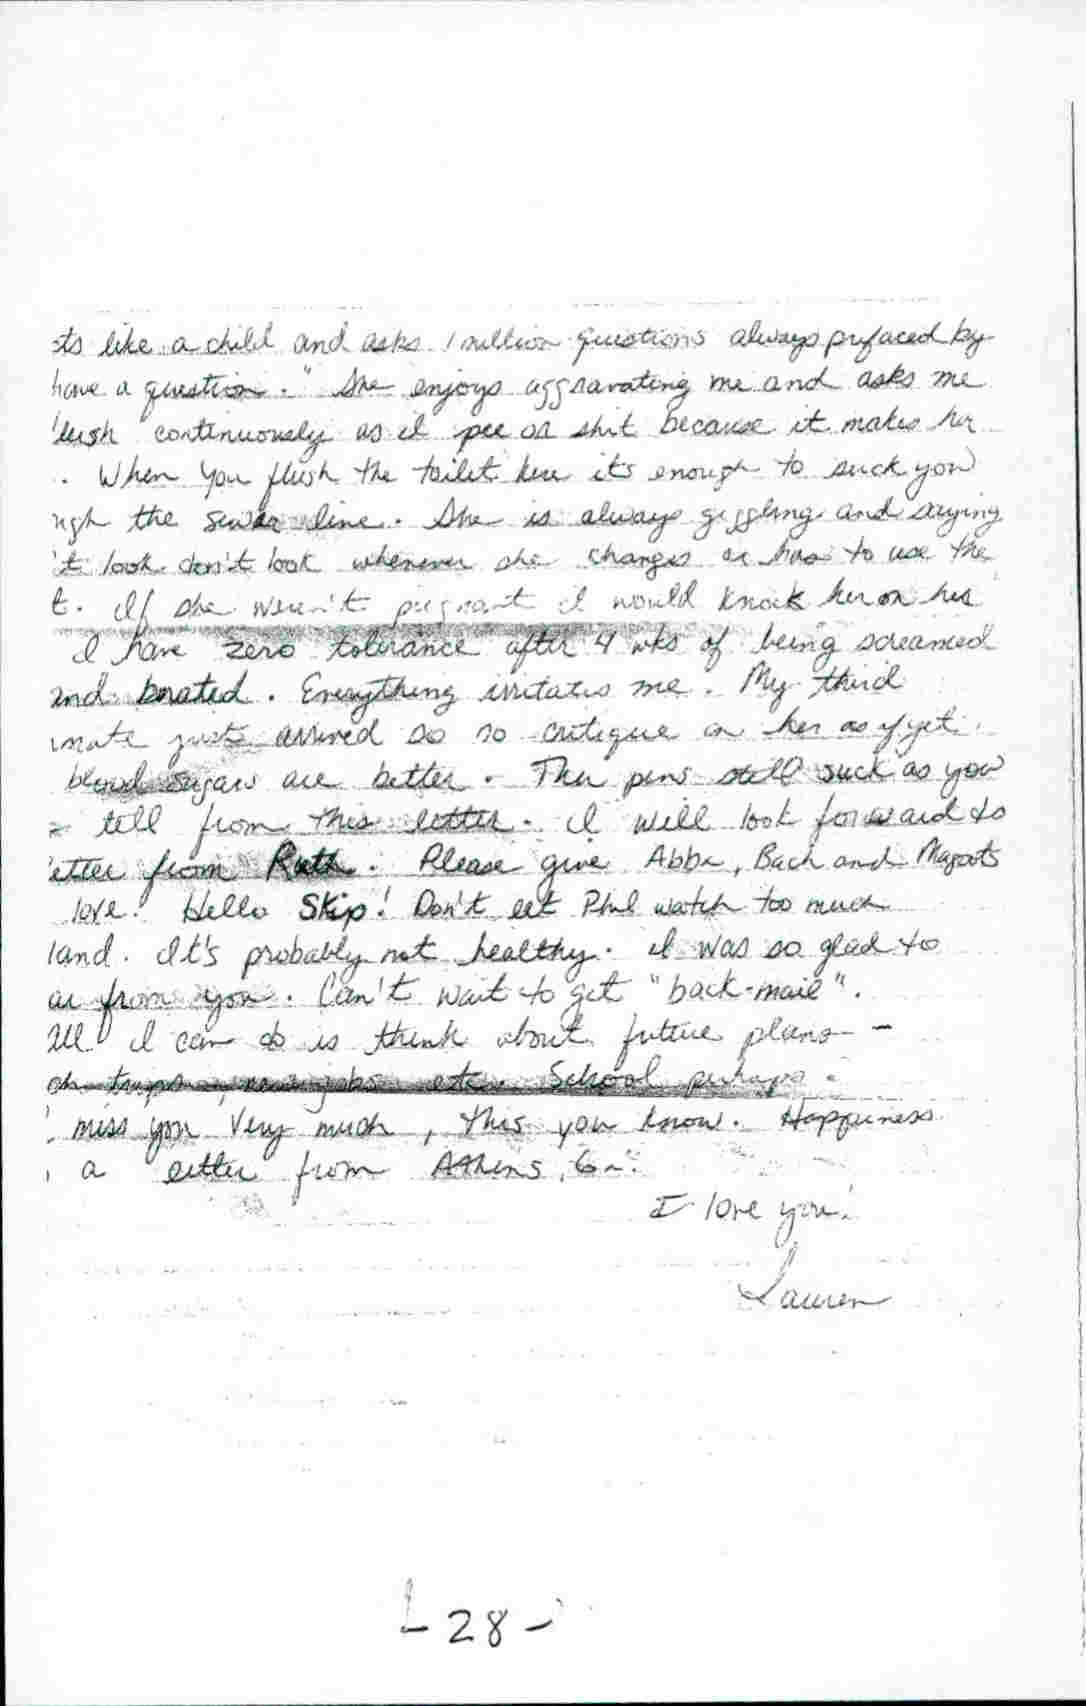 sts like a child and asks 1 million questions always prefaced by
have a question." She enjoys aggravating me and asks me
continuously as I pee or shit because it makes her
. When you flush the toilet here it's enough to suck you
ugh the sewer line. She is always giggling and saying
't look don't look whenever she changes or has to use the
t. If she weren't pregnant I would knock her on her
I have zero tolerance after 4 wks of being screamed
and berated. Everything irritates me. My third
mate just arrived so no critique on her as of yet.
blood sugars are better. The pens still suck as you
tell from this letter. I will look forward to
etter from Ruth. Please give Abba, Bach and
love. Hello Skip! Don't let Phil watch too much
land. It's probably not healthy. I was so glad to
ar from you. Can't wait to get "back-mail".
All I can do is think about future plans -
trips, new jobs etc. School perhaps.
I miss you very much, this you know. Happiness
a letter from Athens, Ga.
I love you!
Lauren
-28-